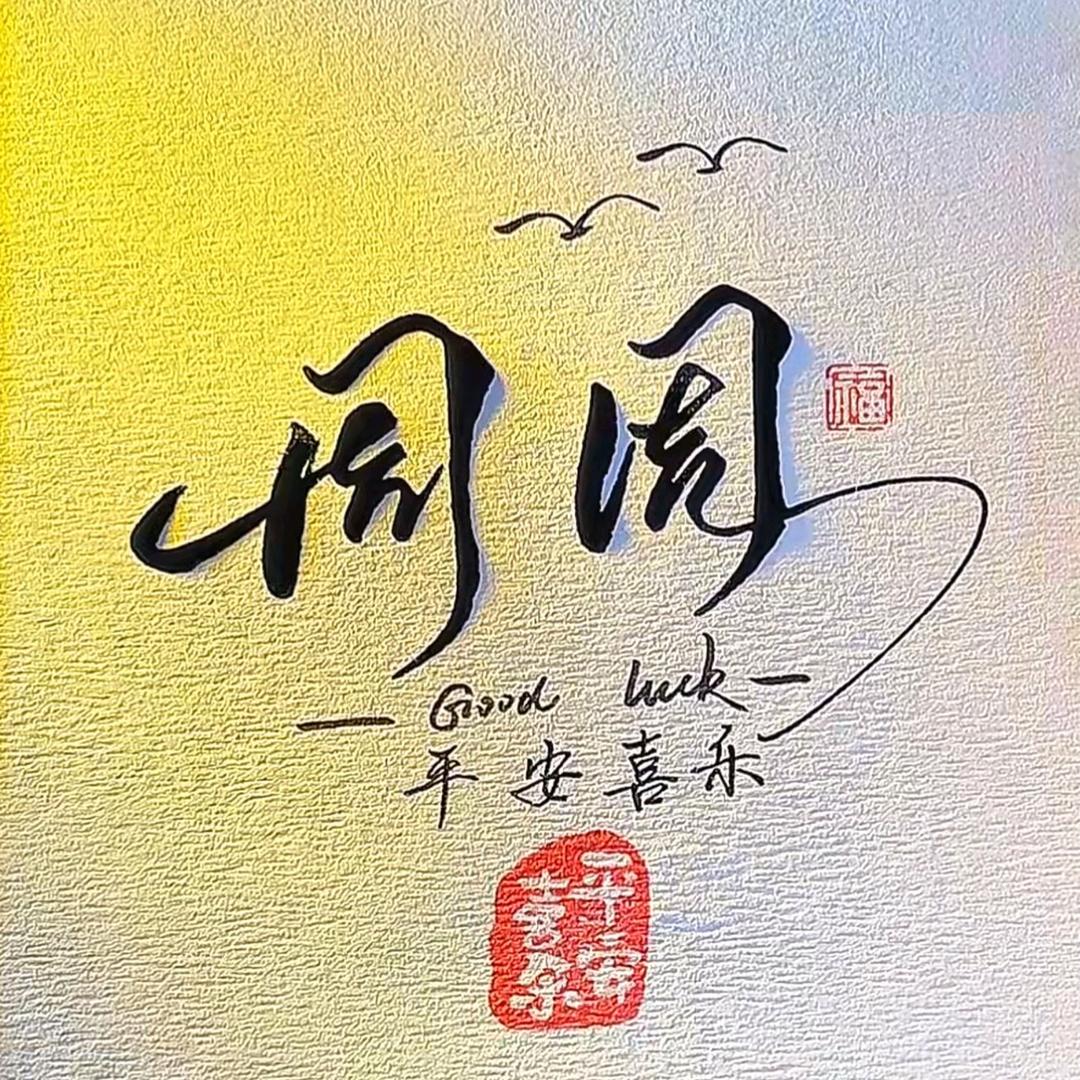 周周
福
Good luck
平安喜乐
平安
喜乐